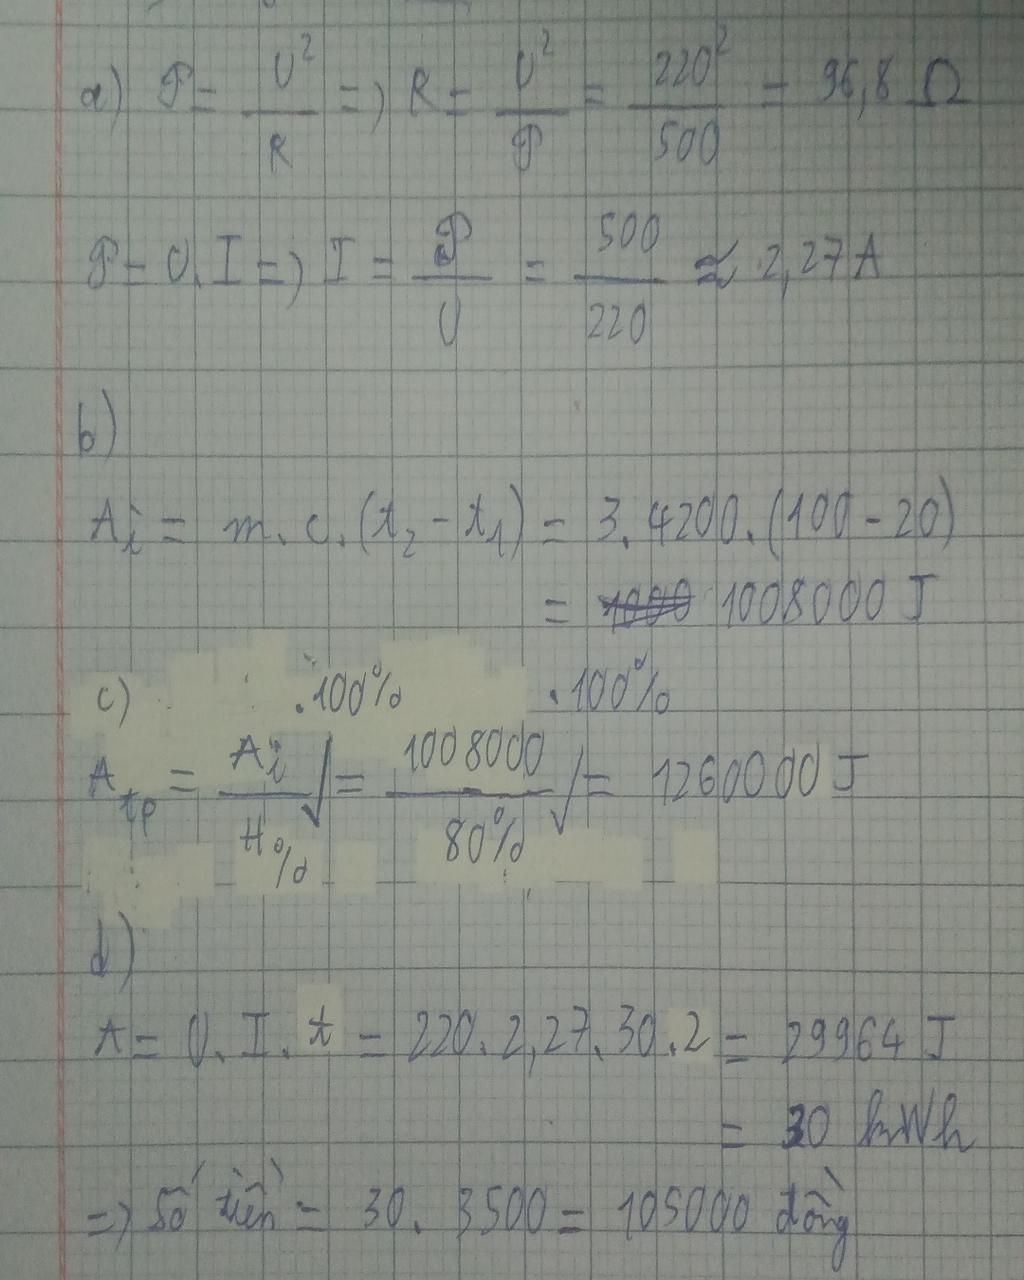 a) P = U²/R => R = U²/P = 220²/500 = 96,8 Ω
P = U.I => I = P/U = 500/220 ≈ 2,27A
b)
Ai = m.c.(t₂ - t₁) = 3.4200.(100 - 20)
= 1008000 J
c)
Atp = Ai/H% .100% = 1008000/80% .100% = 1260000 J
d)
A = U.I.t = 220.2,27.30.2 = 29964 J
= 30 kWh
=> Số tiền = 30.3500 = 105000 đồng